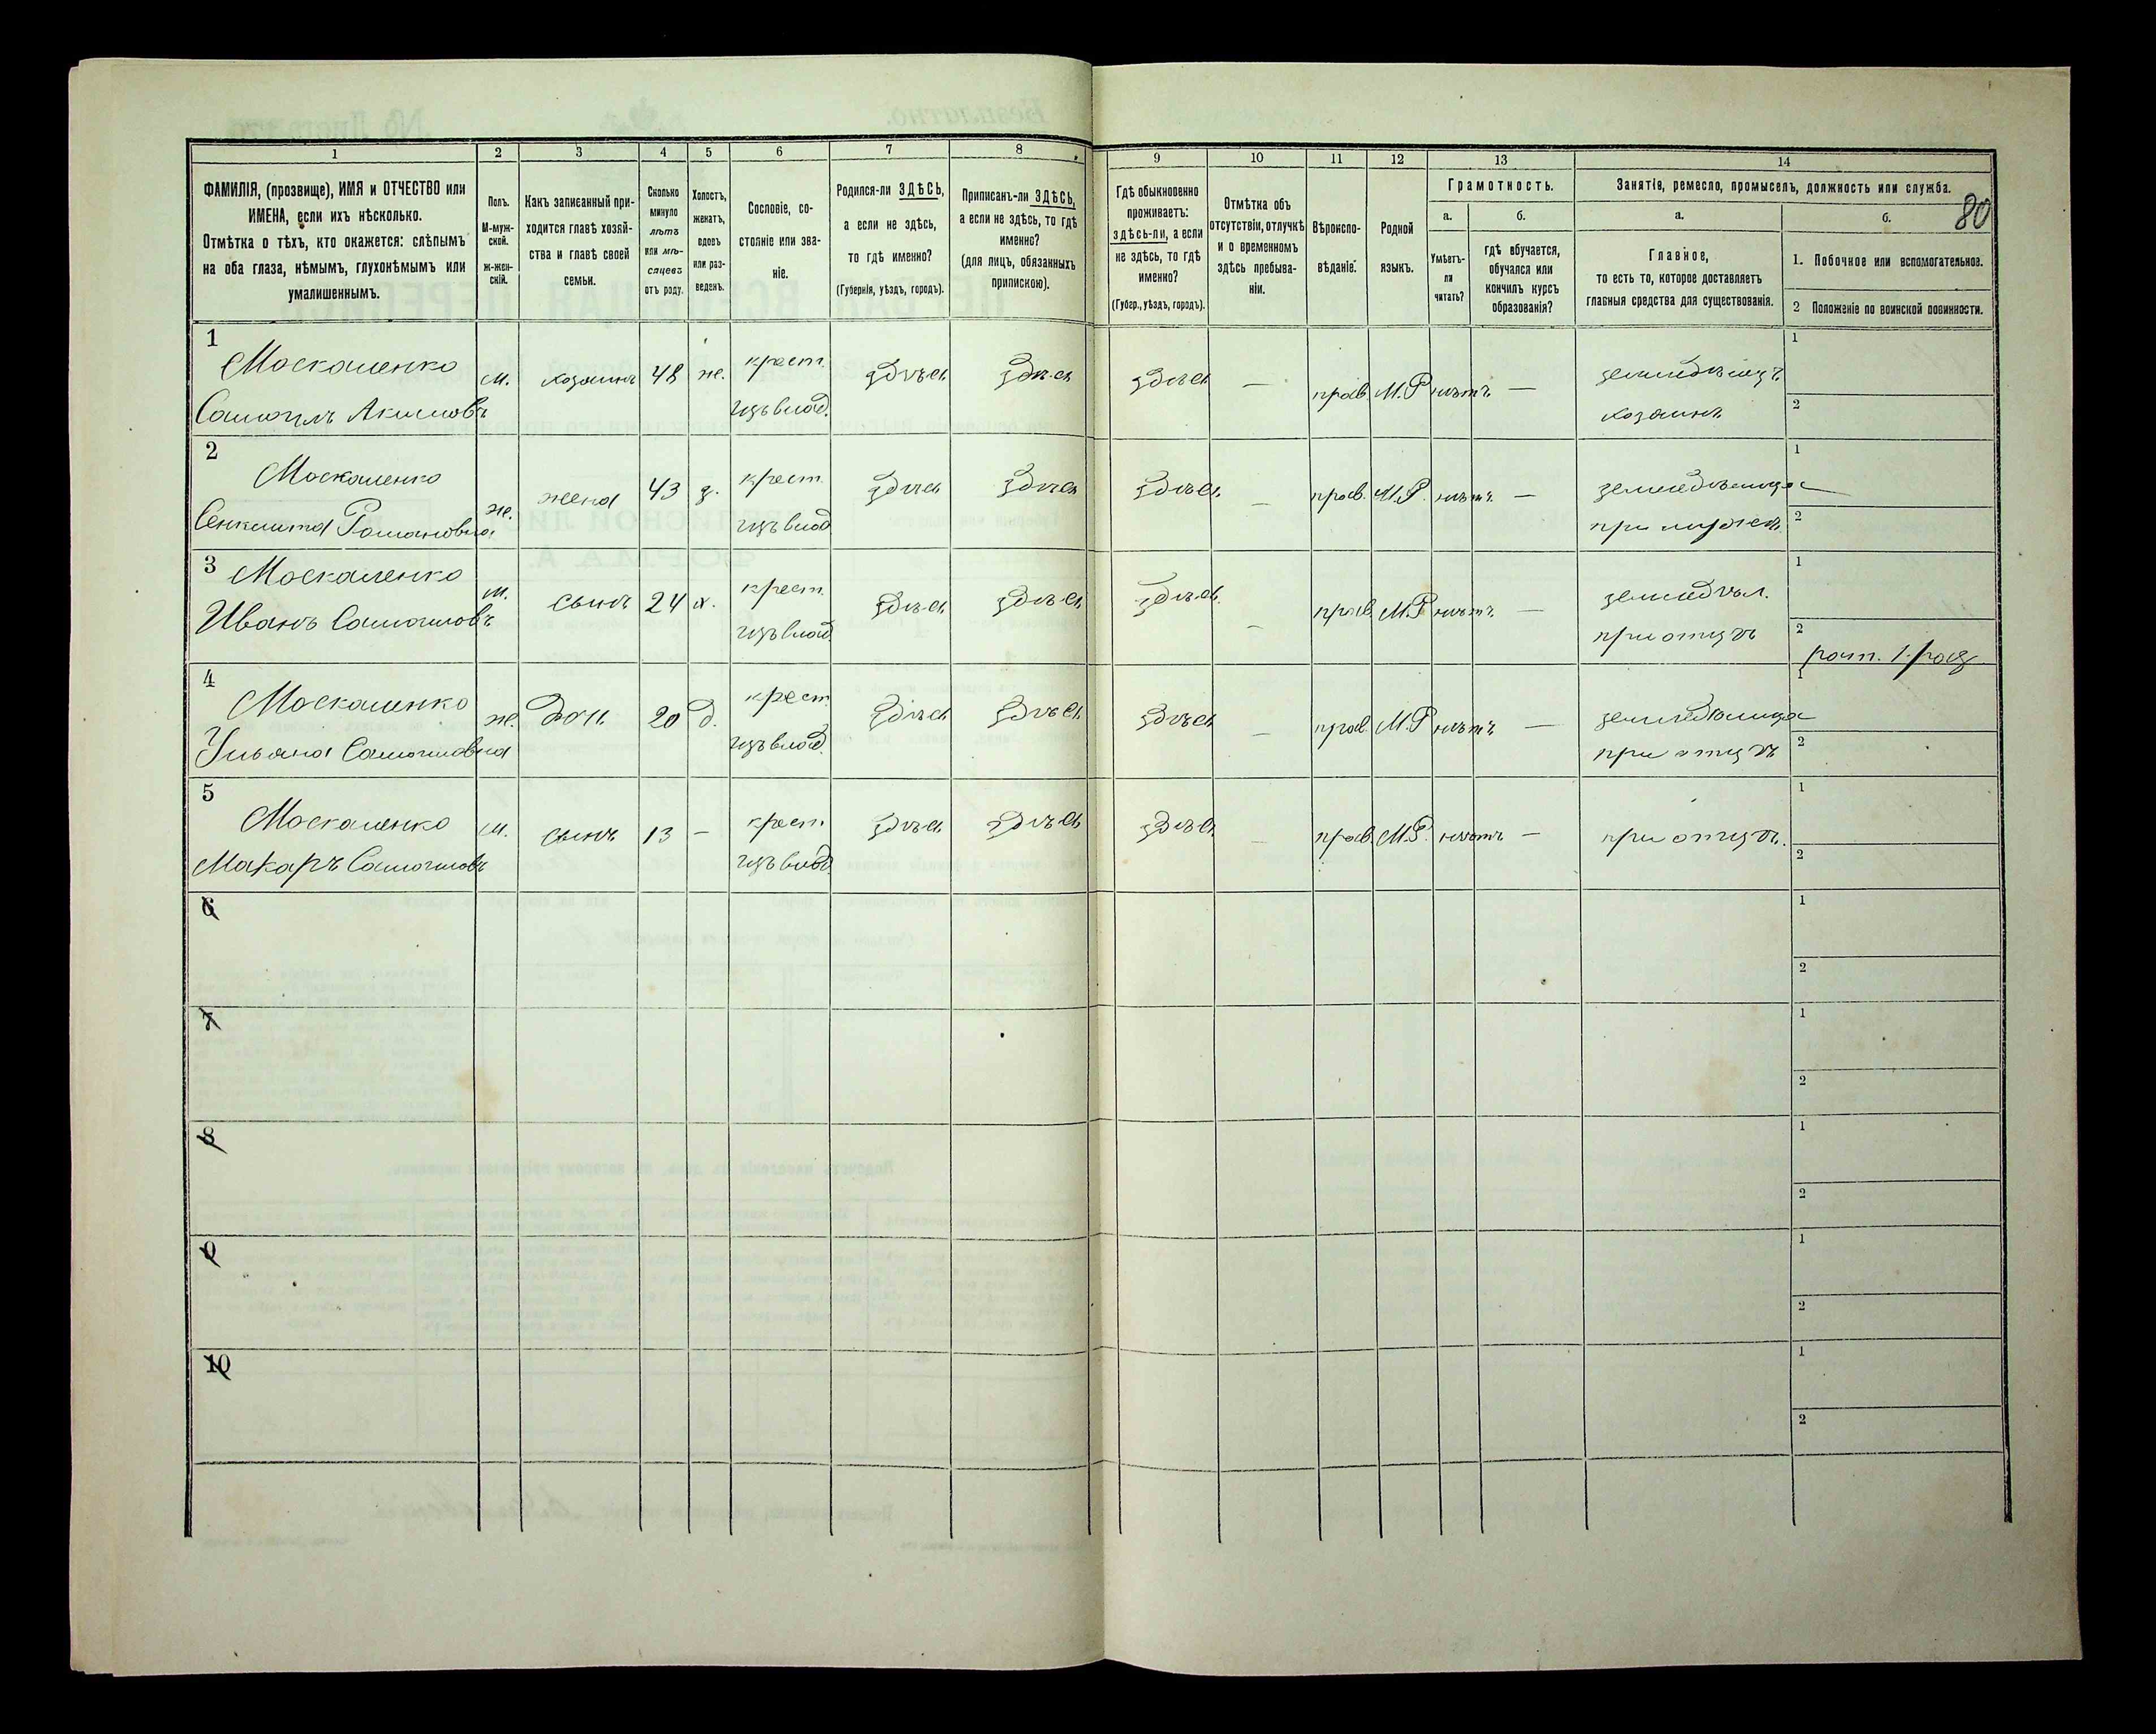 1 2 3 4 5 6 7 8 9 10 11 12 13 14
80
ФАМИЛІЯ, (прозвище), ИМЯ и ОТЧЕСТВО или
ИМЕНА, если ихъ нѣсколько.
Отмѣтка о тѣхъ, кто окажется: слѣпымъ
на оба глаза, нѣмымъ, глухонѣмымъ или
умалишеннымъ.
Полъ.
М-муж-
ской.
ж-жен-
скій.
Какъ записанный при-
ходится главѣ хозяй-
ства и главѣ своей
семьи.
Сколько
минуло
лѣтъ
или мѣ-
сяцевъ
отъ роду.
Холостъ,
женатъ,
вдовъ
или раз-
веденъ.
Сословіе, со-
стояніе или зва-
ніе.
Родился-ли ЗДѢСЬ,
а если не здѣсь,
то гдѣ именно?
(Губернія, уѣздъ, городъ).
Приписанъ-ли ЗДѢСЬ,
а если не здѣсь, то гдѣ
именно?
(для лицъ, обязанныхъ
припискою).
Гдѣ обыкновенно
проживаетъ:
здѣсь-ли, а если
не здѣсь, то гдѣ
именно?
(Губер., уѣздъ, городъ).
Отмѣтка объ
отсутствіи, отлучкѣ
и о временномъ
здѣсь пребыва-
ніи.
Вѣроиспо-
вѣданіе.
Родной
языкъ.
Грамотность.
а. б.
Умѣетъ-
ли
читать?
гдѣ обучается,
обучался или
кончилъ курсъ
образованія?
Занятія, ремесло, промыселъ, должность или служба.
а. б.
Главное,
то есть то, которое доставляетъ
главныя средства для существованія.
1. Побочное или вспомогательное.
2 Положеніе по воинской повинности.
1
Москаленко м. хозяинъ 48 же. крест. здѣсь здѣсь здѣсь — прав. М.Р. нѣтъ — земледѣлецъ 1
Самоилъ Акимовъ изъ влад. хозяинъ 2
2
Москаленко же. жена 43 з. крест. здѣсь здѣсь здѣсь — прав. М.Р. нѣтъ — земледѣлица 1
Романовна изъ влад при мужѣ 2
3
Москаленко м. сынъ 24 х. крест. здѣсь здѣсь здѣсь — прав. М.Р нѣтъ — земледѣл. 1
Иванъ Самоиловъ изъ влад при отцѣ 2
ратн. 1. раз.
4
Москаленко же. дочь 20 д. крест здѣсь здѣсь здѣсь — прав. М.Р нѣтъ — земледѣлица 1
Ульяна Самоиловна изъ влад. при отцѣ 2
5
Москаленко м. сынъ 13 — крест. здѣсь здѣсь здѣсь — прав. М.Р. нѣтъ — при отцѣ. 1
Макаръ Самоиловъ изъ влад. 2
6 1
2
7 1
2
8 1
2
9 1
2
10 1
2